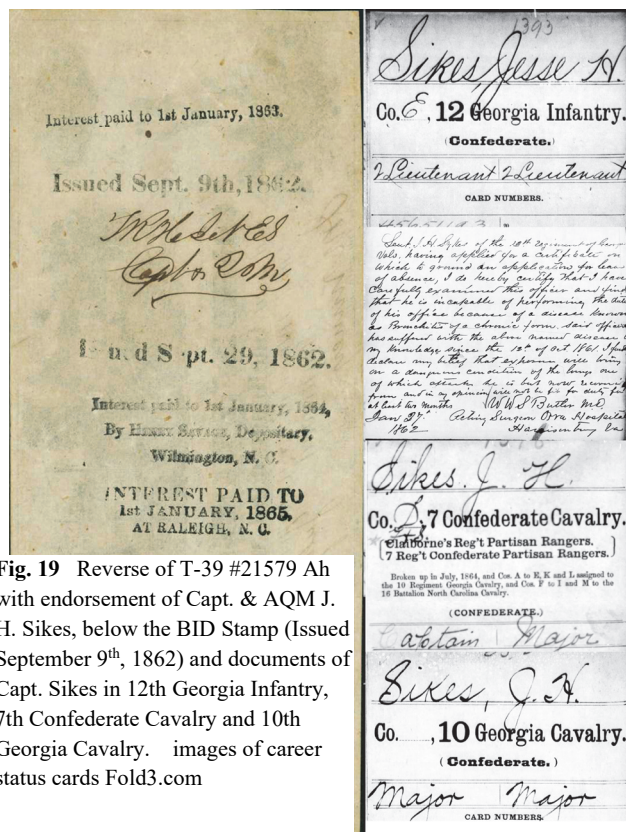 Interest paid to 1st January, 1863.
Issued Sept. 9th, 1862.
Issued Sept. 29, 1862.
Interest paid to 1st January, 1864,
By HENRY SAVAGE, Depositary,
Wilmington, N. C.
INTEREST PAID TO
1st JANUARY, 1865,
AT RALEIGH, N. C.
Fig. 19 Reverse of T-39 #21579 Ah
with endorsement of Capt. & AQM J.
H. Sikes, below the BID Stamp (Issued
September 9th, 1862) and documents of
Capt. Sikes in 12th Georgia Infantry,
7th Confederate Cavalry and 10th
Georgia Cavalry. images of career
status cards Fold3.com
1393
Sikes, Jesse H.
Co. E, 12 Georgia Infantry.
(Confederate.)
2 Lieutenant 2 Lieutenant
CARD NUMBERS.
Lieut. J. H. Sykes of the 12th Regiment of
Vols. having applied for a certificate on
which to ground an application for leave
of absence, I do hereby certify that I have
carefully examined this officer and find
that he is incapable of performing the duties
of his office because of a disease known
as Bronchitis of a chronic form. said officer
has suffered with the above named disease to
my knowledge since the 10th of Oct 1861. I further
declare my belief that exposure will bring
on a dangerous condition of the lungs one
of which attacks he is but now recovering
from and in my opinion will not be fit for duty for
at least two months W W S Butler MD
Jan 27th Acting Surgeon Hospital
1862 Harrisonburg Va
Sikes. J. H.
Co. D, 7 Confederate Cavalry.
Claiborne's Reg't Partisan Rangers.
7 Reg't Confederate Partisan Rangers.
Broken up in July, 1864, and Cos. A to E, K and L assigned to
the 10 Regiment Georgia Cavalry, and Cos. F to I and M to the
16 Battalion North Carolina Cavalry.
(CONFEDERATE.)
Captain Major
Sikes, J. H.
Co. , 10 Georgia Cavalry.
(Confederate.)
Major Major
CARD NUMBERS.